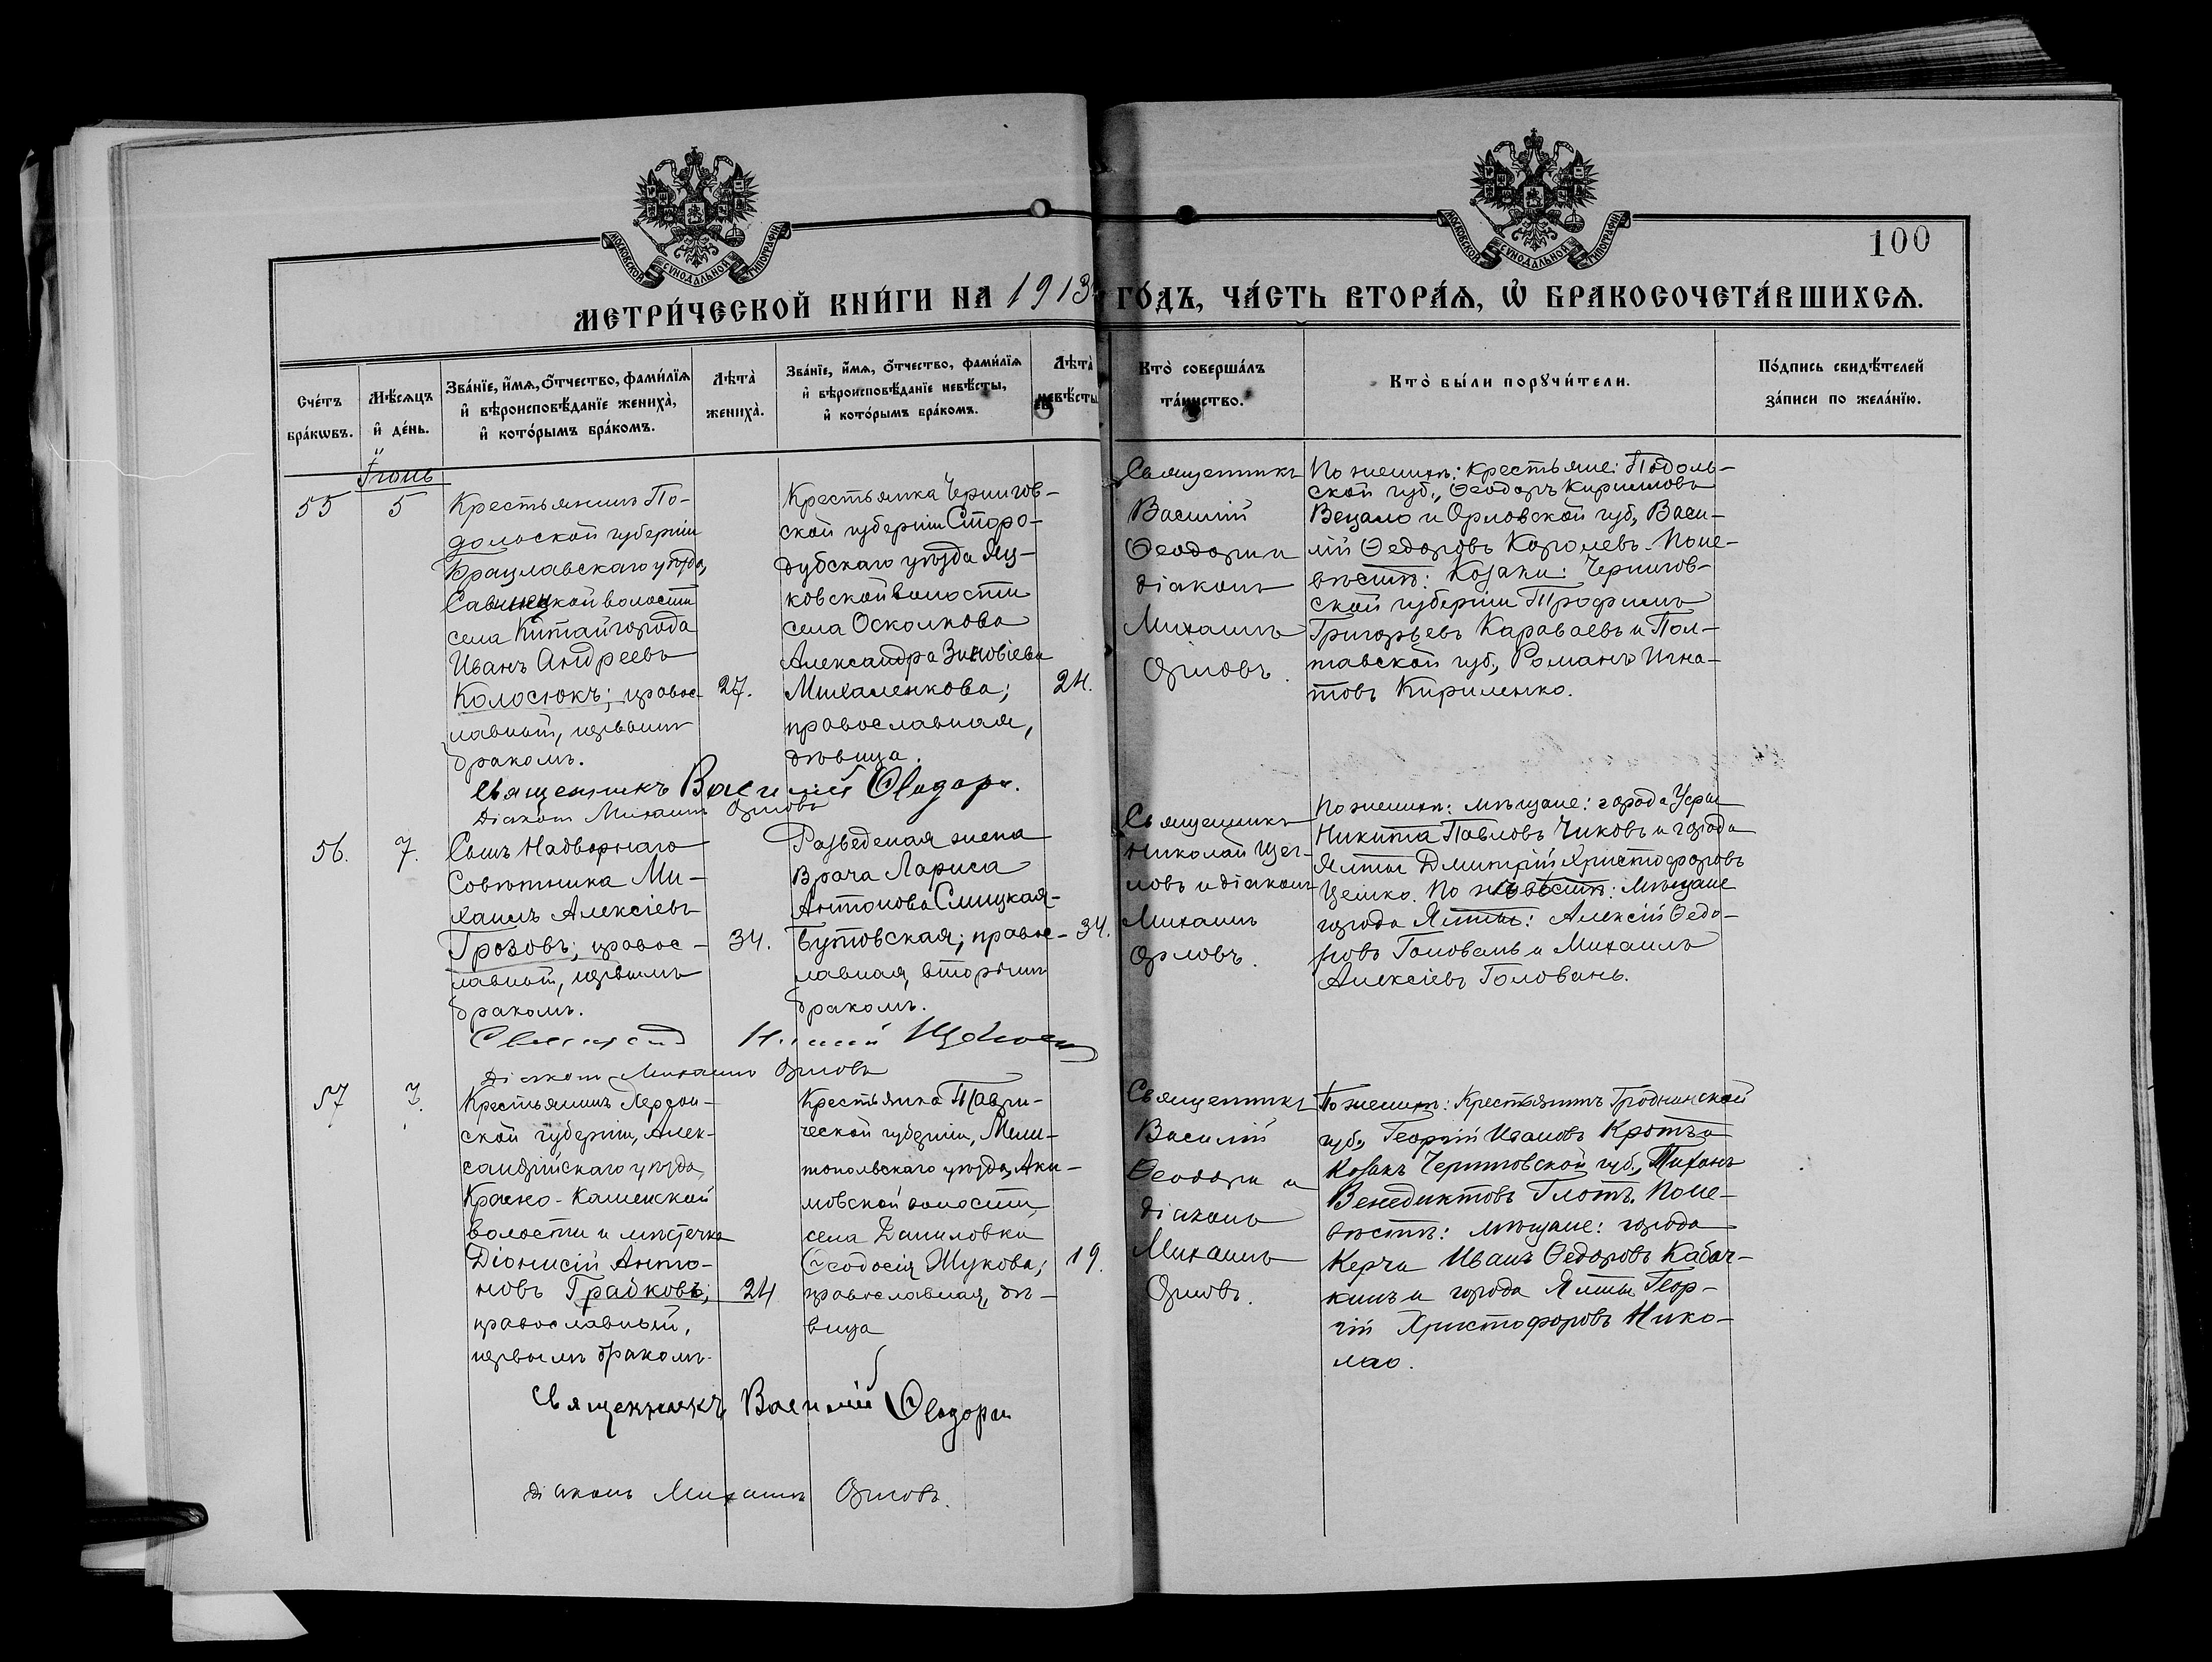 МОСКОВСКОЙ СУНОДАЛЬНОЙ ТИПОГРАФІИ
МОСКОВСКОЙ СУНОДАЛЬНОЙ ТИПОГРАФІИ
100
МЕТРИ́ЧЕСКОЙ КНИ́ГИ НА 1913 ГО́ДЪ, ЧА́СТЬ ВТОРА́Я, Ѡ БРАКОСОЧЕТА́ВШИХСЯ.
Сче́тъ
бра́кѡвъ.
Мѣ́сяцъ
и҆ де́нь.
Зва́нїе, и҆́мя, ѻ҆́тчество, фами́лїя
и҆ вѣроисповѣ́данїе жениха̀,
и҆ кото́рымъ бра́комъ.
Лѣта̀
жениха̀.
Зва́нїе, и҆́мя, ѻ҆́тчество, фами́лїя
и҆ вѣроисповѣ́данїе невѣ́сты,
и҆ кото́рымъ бра́комъ.
Лѣта̀
невѣ́сты
Кто̀ соверша́лъ
та́инство.
Кто̀ бы́ли порꙋчи́тели.
По́дпись свидѣ́телей
за́писи по жела́нїю.
Іюнь
55
5
Крестьянинъ По-
дольской губерніи
Брацлавскаго уѣзда,
Савинецкой волости
села Китайгорода
Иванъ Андреевъ
Колосюкъ; правос-
лавный, первымъ
бракомъ.
27.
Крестьянка Чернигов-
ской губерніи Старо-
дубскаго уѣзда Яц-
ковской волости
села Осколкова
Александра Зиновіева
Михаленкова;
православная,
дѣвица.
24.
Священникъ
Василій
Ѳеодори и
діаконъ
Михаилъ
Орловъ.
По женихѣ: крестьяне: Подоль-
ской губ., Ѳеодоръ Кирилловъ
Вецало и Орловской губ., Васи-
лій Ѳедоровъ Королевъ. По не-
вѣстѣ: Козаки: Чернигов-
ской губерніи Трофимъ
Григорьевъ Караваевъ и Пол-
тавской губ., Романъ Игна-
товъ Кириленко.
Священникъ Василій Ѳеодори.
Діаконъ Михаилъ Орловъ
56.
7.
Сынъ Надворнаго
Совѣтника Ми-
хаилъ Алексіевъ
Грозовъ; правос-
лавный, первымъ
бракомъ.
34.
Разведеная жена
Врача Лариса
Антонова Слицкая-
Бутовская; правос-
лавная, вторымъ
бракомъ.
34.
Священникъ
Николай Щег-
ловъ и діаконъ
Михаилъ
Орловъ.
По женихѣ: мѣщане: города Уфы
Никита Павловъ Чиковъ и города
Ялты Дмитрій Христофоровъ
Цешко. По невѣстѣ: Мѣщане
города Ялты: Алексій Ѳедо-
ровъ Головань и Михаилъ
Алексіевъ Головань.
Діаконъ Михаилъ Орловъ
57
7.
Крестьянинъ Херсон-
ской губерніи, Алек-
сандрійскаго уѣзда,
Красно-Каменской
волости и мѣстечка
Діонисій Анто-
новъ Грабковъ;
православный,
первымъ бракомъ.
24
Крестьянка Таври-
ческой губерніи, Мели-
топольскаго уѣзда, Аки-
мовской волости
села Даниловки
Ѳеодосія Жукова;
православная, дѣ-
вица
19.
Священникъ
Василій
Ѳеодори и
діаконъ
Михаилъ
Орловъ.
По женихѣ: Крестьянинъ Гродненской
губ., Георгій Ивановъ Кротъ и
Козакъ Черниговской губ., Тихонъ
Венедиктовъ Глотъ. По не-
вѣстѣ: мѣщане: города
Керчи Иванъ Ѳедоровъ Кабач-
кинъ и города Ялты Геор-
гій Христофоровъ Нико-
лао.
Священникъ Василій Ѳеодори
діаконъ Михаилъ Орловъ.